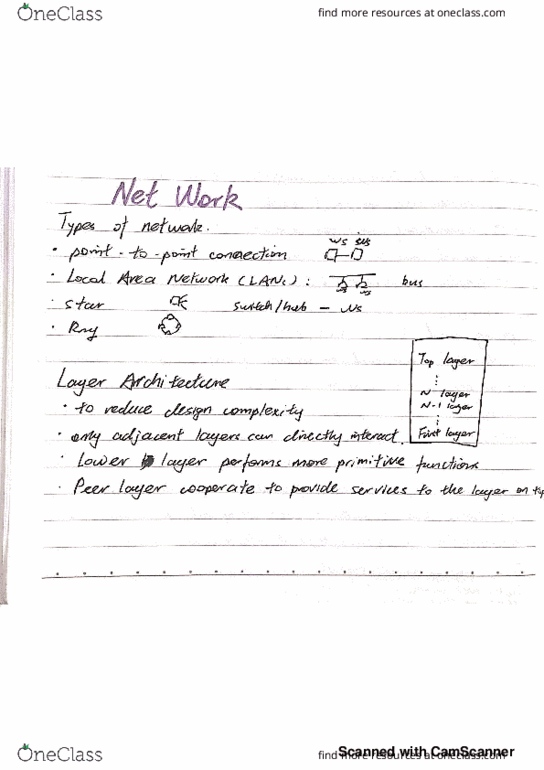 OneClass
find more resources at oneclass.com
Net Work
Types of network.
· point-to-point connection
ws
· Local Area Network (LANs) : bus
ws ws
· Star switch/hub - ws
· Ring
Layer Architecture
· to reduce design complexity
· only adjacent layers can directly interact.
· Lower layer performs more primitive functions
· Peer layer cooperate to provide services to the layer on
Top layer
⋮
N layer
N-1 layer
⋮
First layer
OneClass
find more resources at oneclass.com
Scanned with CamScanner